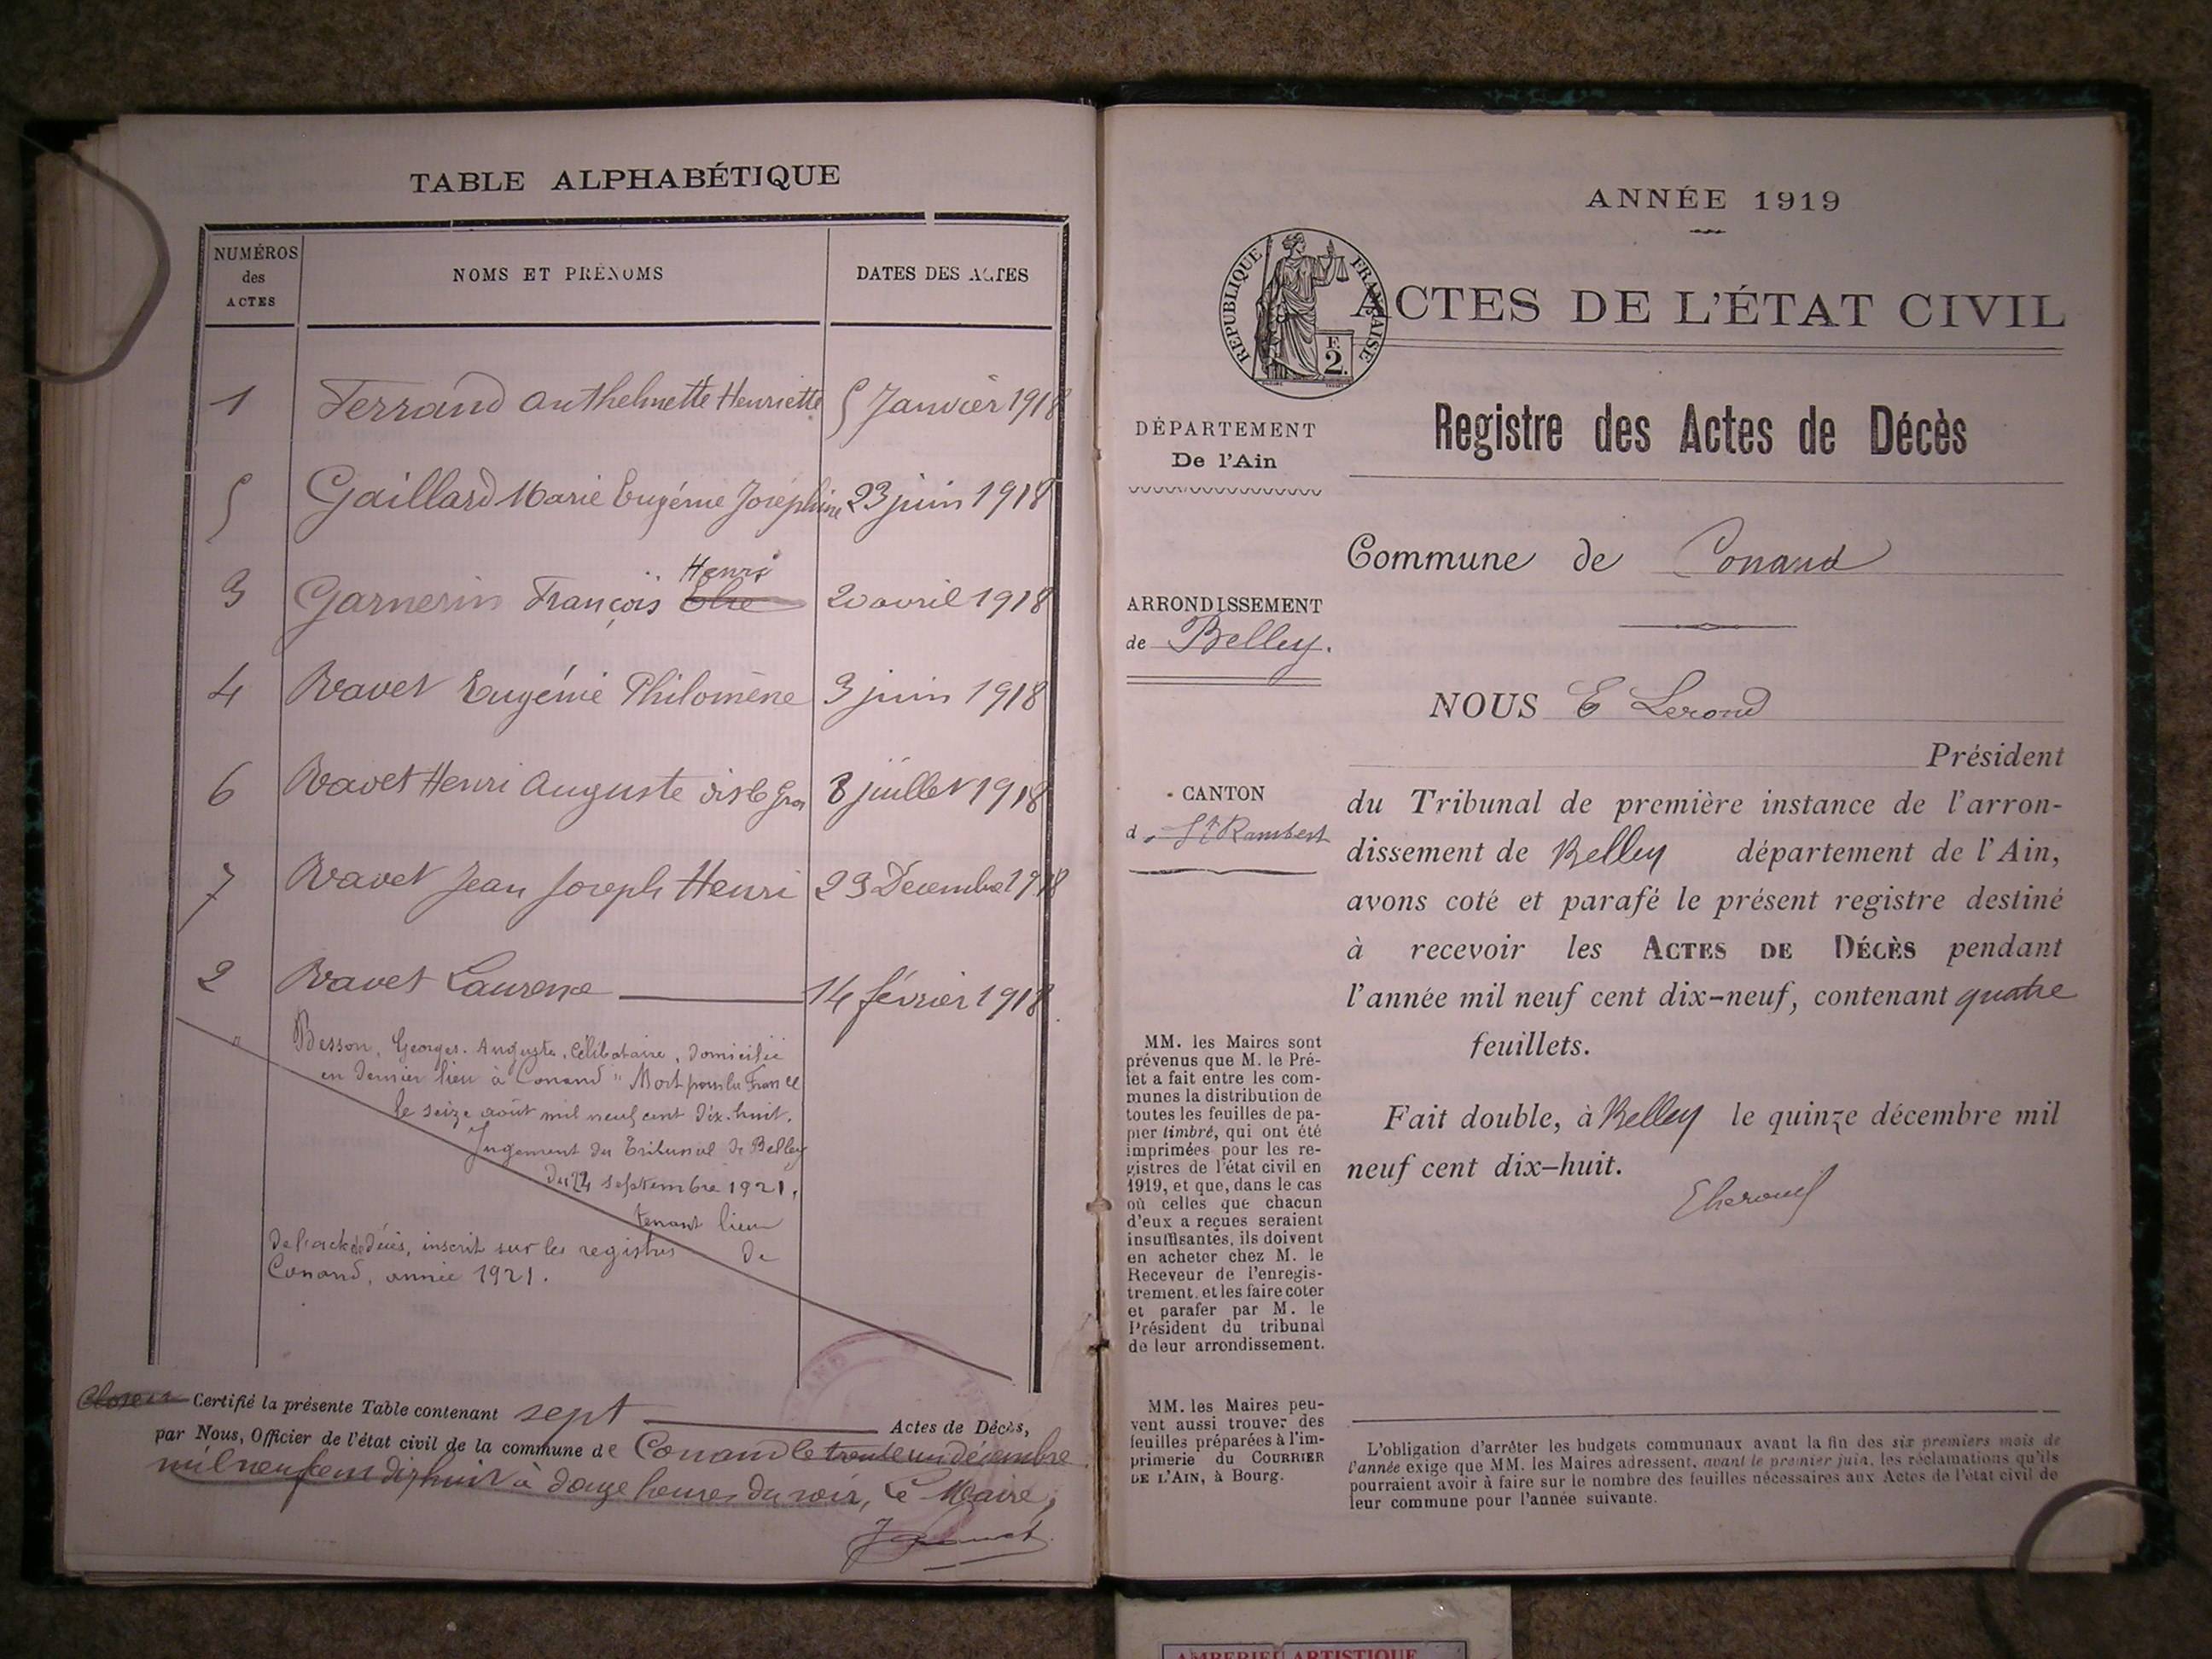 TABLE ALPHABÉTIQUE
NUMÉROS
des
ACTES
NOMS ET PRÉNOMS
DATES DES ACTES
1 Ferrand Anthelmette Henriette 5 Janvier 1918
5 Gaillard Marie Eugénie Joséphine 23 juin 1918
Henri
3 Garnerin François 20 avril 1918
4 Ravet Eugénie Philomène 3 juin 1918
6 Ravet Henri Auguste 8 juillet 1918
7 Ravet Jean Joseph Henri 23 Decembre 1918
2 Ravet Laurence 14 février 1918
" Besson, Georges. Auguste, célibataire, domicilié
en dernier lieu à Conand " Mort pour la France
le seize août mil neuf cent dix-huit.
Jugement du Tribunal de Belley
du 24 septembre 1921,
tenant lieu
de l'acte de décès, inscrit sur les registres de
Conand, année 1921.
Certifié la présente Table contenant sept Actes de Décès,
par Nous, Officier de l'état civil de la commune de Conand le trente un décembre
mil neuf cent dix huit à douze heures du soir, Le Maire,
ANNÉE 1919
RÉPUBLIQUE FRANÇAISE
F.
2.
ACTES DE L'ÉTAT CIVIL
DÉPARTEMENT
De l'Ain
Registre des Actes de Décès
Commune de Conand
ARRONDISSEMENT
de Belley.
NOUS E Lerond
Président
CANTON
d St Rambert
du Tribunal de première instance de l'arron-
dissement de Belley département de l'Ain,
avons coté et parafé le présent registre destiné
à recevoir les ACTES DE DÉCÈS pendant
l'année mil neuf cent dix-neuf, contenant quatre
feuillets.
Fait double, à Belley le quinze décembre mil
neuf cent dix-huit.
E Lerond
MM. les Maires sont
prévenus que M. le Pré-
fet a fait entre les com-
munes la distribution de
toutes les feuilles de pa-
pier timbré, qui ont été
imprimées pour les re-
gistres de l'état civil en
1919, et que, dans le cas
où celles que chacun
d'eux a reçues seraient
insuffisantes, ils doivent
en acheter chez M. le
Receveur de l'enregis-
trement, et les faire coter
et parafer par M. le
Président du tribunal
de leur arrondissement.
MM. les Maires peu-
vent aussi trouver des
feuilles préparées à l'im-
primerie du COURRIER
DE L'AIN, à Bourg.
L'obligation d'arrêter les budgets communaux avant la fin des six premiers mois de
l'année exige que MM. les Maires adressent, avant le premier juin, les réclamations qu'ils
pourraient avoir à faire sur le nombre des feuilles nécessaires aux Actes de l'état civil de
leur commune pour l'année suivante.
AMBERIEU ARTISTIQUE